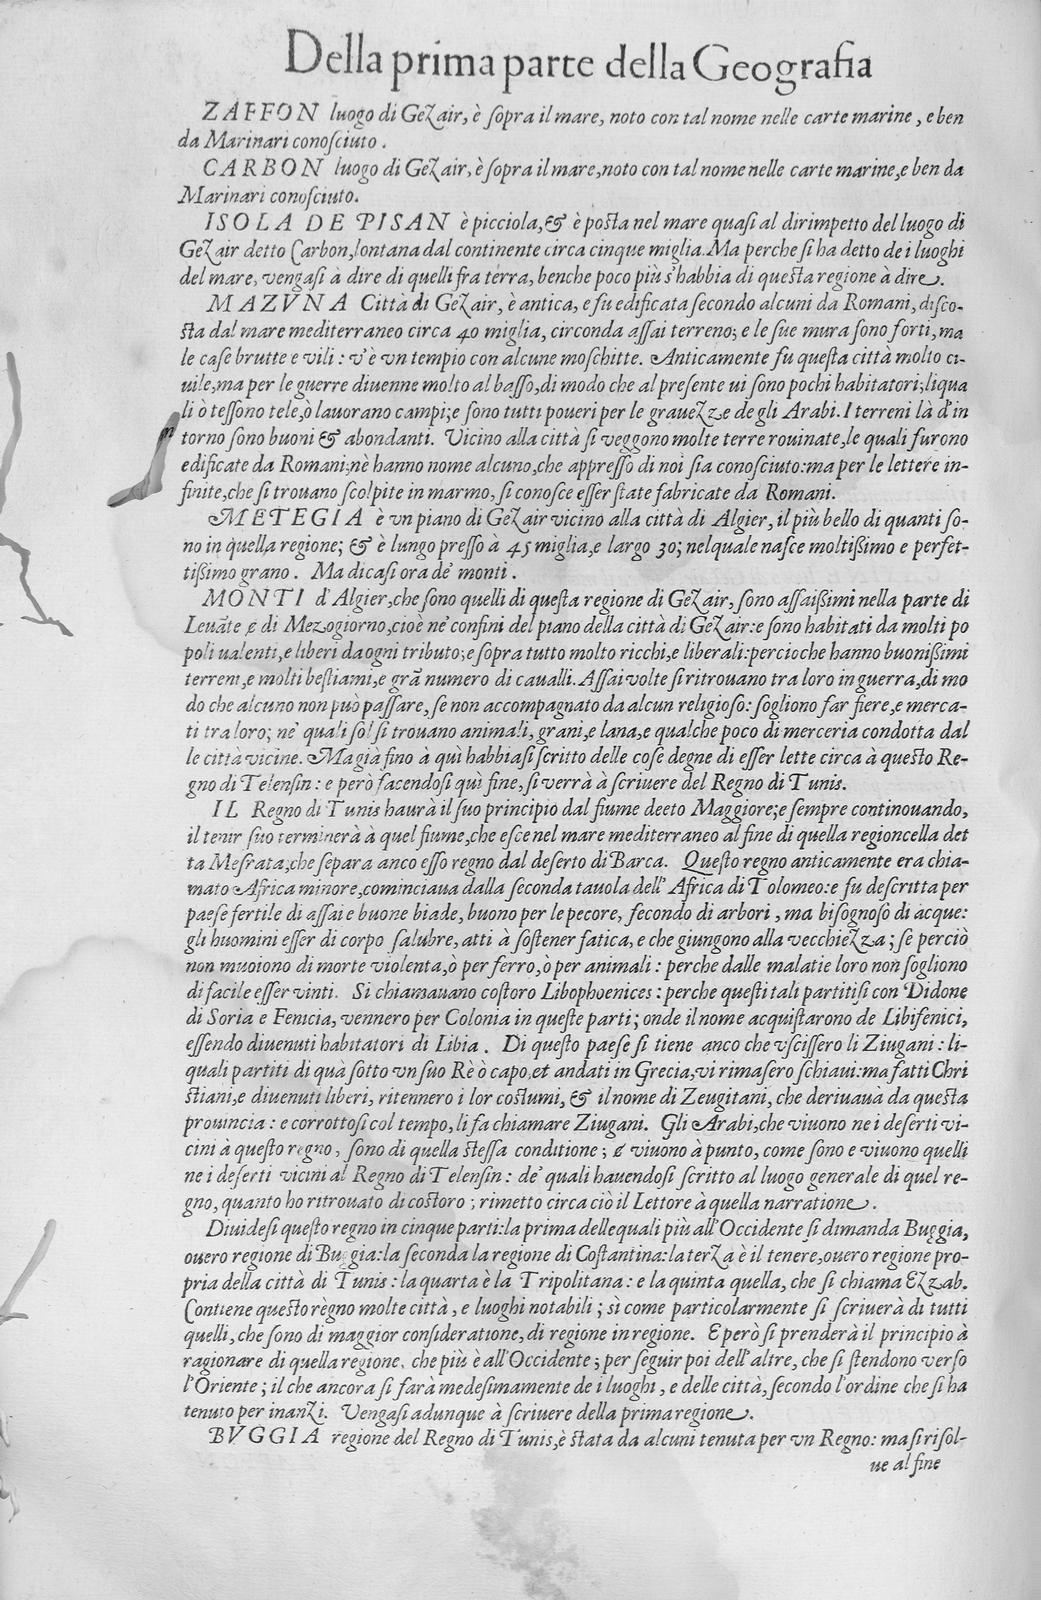 Della prima parte della Geografia
ZAFFON luogo di Gezair, è sopra il mare, noto con tal nome nelle carte marine, e ben
da Marinari conosciuto.
CARBON luogo di Gezair, è sopra il mare, noto con tal nome nelle carte marine, e ben da
Marinari conosciuto.
ISOLA DE PISAN è picciola, & è posta nel mare quasi al dirimpetto del luogo di
Gezair detto Carbon, lontana dal continente circa cinque miglia. Ma perche si ha detto de i luoghi
del mare, vengasi à dire di quelli fra terra, benche poco più s'habbia di questa regione à dire.
MAZVNA Città di Gezair, è antica, e fu edificata secondo alcuni da Romani, disco-
sta dal mare mediterraneo circa 40 miglia, circonda assai terreno; e le sue mura sono forti, ma
le case brutte e vili: v'è vn tempio con alcune moschitte. Anticamente fu questa città molto ci-
uile, ma per le guerre diuenne molto al basso, di modo che al presente ui sono pochi habitatori; liqua
li ò tessono tele, ò lauorano campi; e sono tutti poueri per le grauezze de gli Arabi. I terreni là d'in
torno sono buoni & abondanti. Vicino alla città si veggono molte terre rouinate, le quali furono
edificate da Romani; nè hanno nome alcuno, che appresso di noi sia conosciuto: ma per le lettere in-
finite, che si trouano scolpite in marmo, si conosce esser state fabricate da Romani.
METEGIA è vn piano di Gezair vicino alla città di Algier, il più bello di quanti so-
no in quella regione; & è lungo presso à 45 miglia, e largo 30; nelquale nasce moltißimo e perfet-
tißimo grano. Ma dicasi ora de' monti.
MONTI d'Algier, che sono quelli di questa regione di Gezair, sono assaißimi nella parte di
Leuãte e di Mezogiorno, cioè ne' confini del piano della città di Gezair: e sono habitati da molti po
poli ualenti, e liberi da ogni tributo; e sopra tutto molto ricchi, e liberali: percioche hanno buonißimi
terreni, e molti bestiami, e grã numero di caualli. Assai volte si ritrouano tra loro in guerra, di mo
do che alcuno non può passare, se non accompagnato da alcun religioso: sogliono far fiere, e merca-
ti tra loro; ne' quali sol si trouano animali, grani, e lana, e qualche poco di merceria condotta dal
le città vicine. Ma già fino à quì habbiasi scritto delle cose degne di esser lette circa à questo Re-
gno di Telensin: e però facendosi quì fine, si verrà à scriuere del Regno di Tunis.
IL Regno di Tunis haurà il suo principio dal fiume deeto Maggiore; e sempre continouando,
il tenir suo terminerà à quel fiume, che esce nel mare mediterraneo al fine di quella regioncella det
ta Mesrata, che separa anco esso regno dal deserto di Barca. Questo regno anticamente era chia-
mato Africa minore, cominciaua dalla seconda tauola dell'Africa di Tolomeo: e fu descritta per
paese fertile di assai e buone biade, buono per le pecore, fecondo di arbori, ma bisognoso di acque:
gli huomini esser di corpo salubre, atti à sostener fatica, e che giungono alla vecchiezza; se perciò
non muoiono di morte violenta, ò per ferro, ò per animali: perche dalle malatie loro non sogliono
di facile esser vinti. Si chiamauano costoro Libophoenices: perche questi tali partitisi con Didone
di Soria e Fenicia, vennero per Colonia in queste parti; onde il nome acquistarono de Libifenici,
essendo diuenuti habitatori di Libia. Di questo paese si tiene anco che vscissero li Ziugani: li-
quali partiti di quà sotto vn suo Rè ò capo, et andati in Grecia, vi rimasero schiaui: ma fatti Chri
stiani, e diuenuti liberi, ritennero i lor costumi, & il nome di Zeugitani, che deriuaua da questa
prouincia: e corrottosi col tempo, li fa chiamare Ziugani. Gli Arabi, che viuono ne i deserti vi-
cini à questo regno, sono di quella stessa conditione; e viuono à punto, come sono e viuono quelli
ne i deserti vicini al Regno di Telensin: de' quali hauendosi scritto al luogo generale di quel re-
gno, quanto ho ritrouato di costoro; rimetto circa ciò il Lettore à quella narratione.
Diuidesi questo regno in cinque parti: la prima delle quali più all'Occidente si dimanda Buggia,
ouero regione di Buggia: la seconda la regione di Costantina: la terza è il tenere, ouero regione pro-
pria della città di Tunis: la quarta è la Tripolitana: e la quinta quella, che si chiama Ezzab.
Contiene questo règno molte città, e luoghi notabili; sì come particolarmente si scriuerà di tutti
quelli, che sono di maggior consideratione, di regione in regione. E però si prenderà il principio à
ragionare di quella regione, che più è all'Occidente; per seguir poi dell'altre, che si stendono verso
l'Oriente; il che ancora si farà medesimamente de i luoghi, e delle città, secondo l'ordine che si ha
tenuto per inanzi. Vengasi adunque à scriuere della prima regione.
BVGGIA regione del Regno di Tunis, è stata da alcuni tenuta per vn Regno: ma si risol-
ue al fine